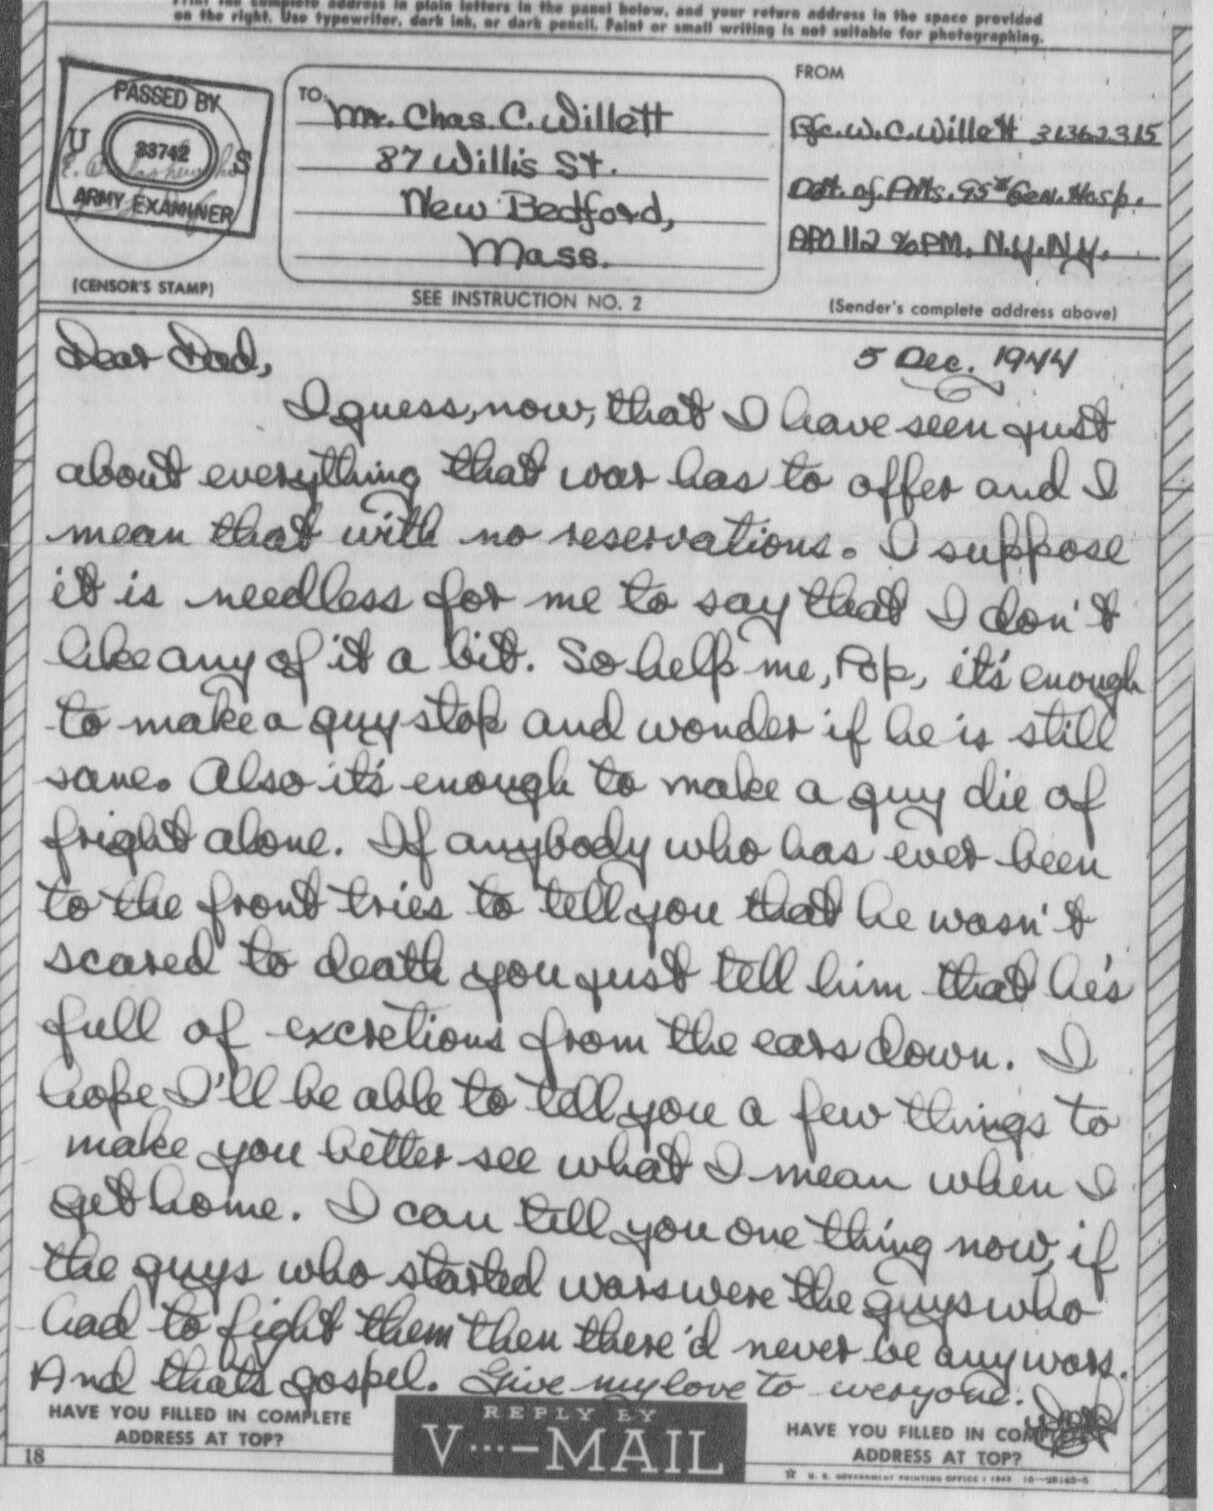 Print the complete address in plain letters in the panel below, and your return address in the space provided
on the right. Use typewriter, dark ink, or dark pencil. Faint or small writing is not suitable for photographing.
PASSED BY
U 33742 S
ARMY EXAMINER
(CENSOR'S STAMP)
TO:
Mr. Chas. C. Willett
87 Willis St.
New Bedford,
Mass.
SEE INSTRUCTION NO. 2
FROM
Pfc. W. C. Willett 31362315
Det. of Pnts. 95th Gen. Hosp.
APO 112 % PM, N.Y. N.Y.
(Sender's complete address above)
5 Dec. 1944
Dear Dad,
I guess, now, that I have seen just
about everything that war has to offer and I
mean that with no reservations. I suppose
it is needless for me to say that I don't
like any of it a bit. So help me, Pop, it's enough
to make a guy stop and wonder if he is still
sane. Also it's enough to make a guy die of
fright alone. If anybody who has ever been
to the front tries to tell you that he wasn't
scared to death you just tell him that he's
full of excretions from the ears down. I
hope I'll be able to tell you a few things to
make you better see what I mean when I
get home. I can tell you one thing now, if
the guys who started wars were the guys who
had to fight them then there'd never be any wars.
And that's gospel. Give my love to everyone.
HAVE YOU FILLED IN COMPLETE
ADDRESS AT TOP?
REPLY BY
V···—MAIL
HAVE YOU FILLED IN COMPLETE
ADDRESS AT TOP?
18
☆ U. S. GOVERNMENT PRINTING OFFICE : 1943 16—28143-5